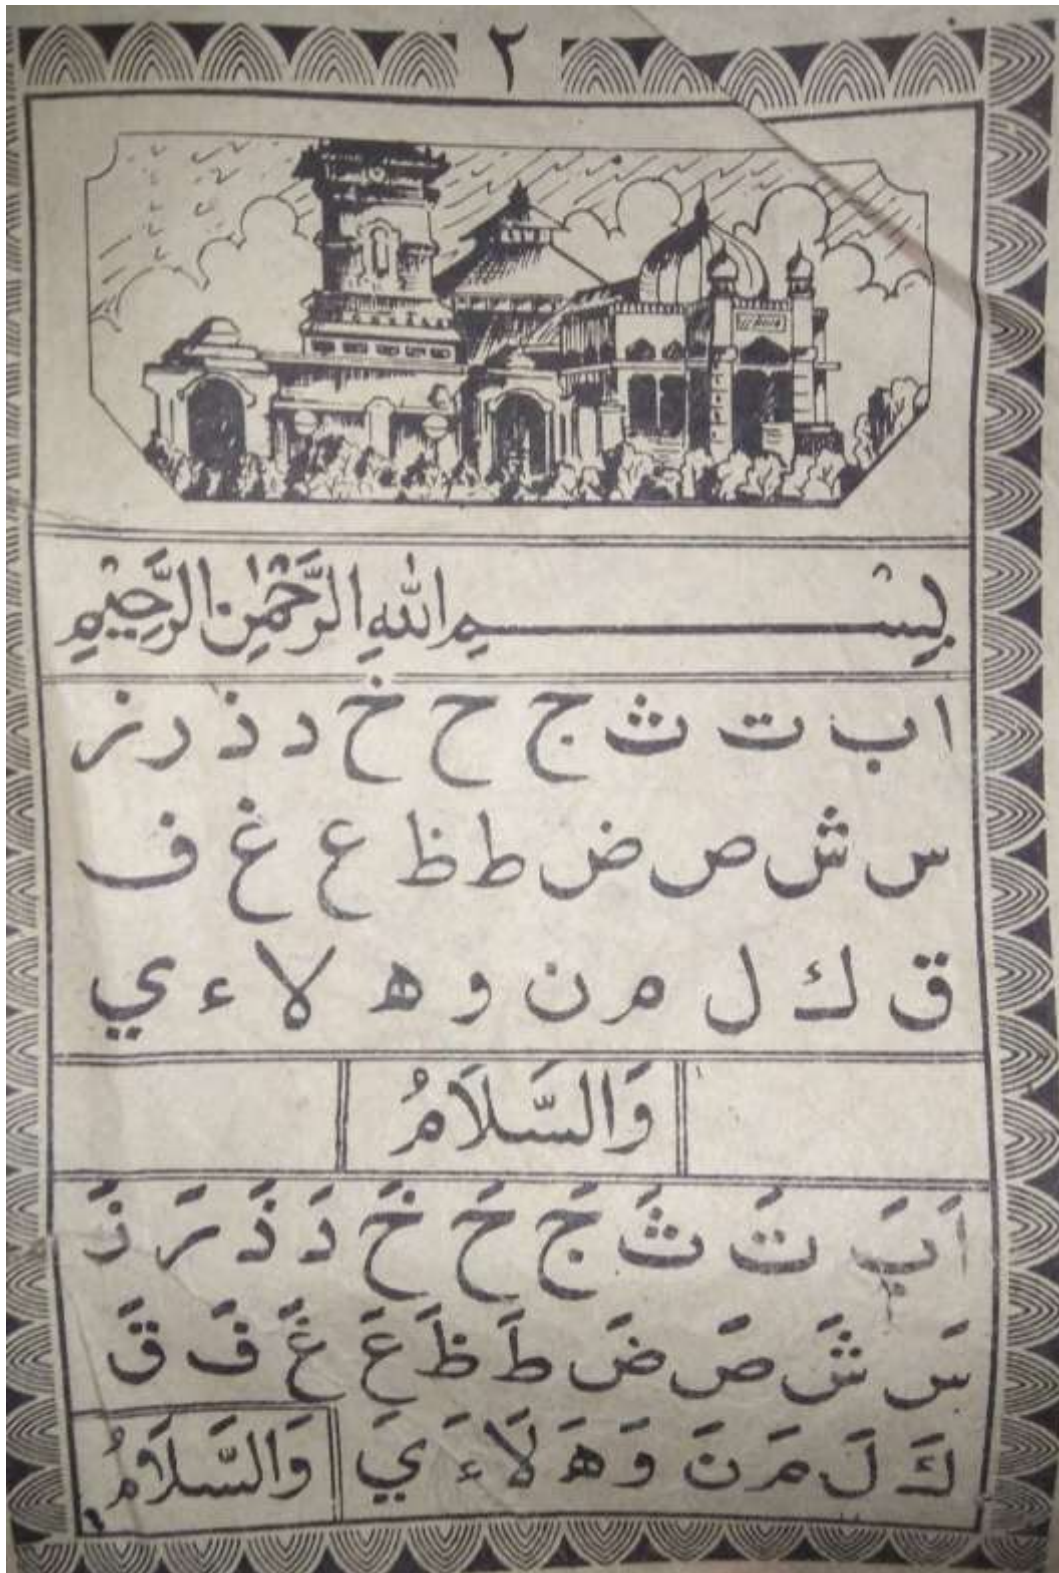 ٢
بِسْــــــــمِ اللهِ الرَّحْمٰنِ الرَّحِيْمِ
ا ب ت ث ج ح خ د ذ ر ز
س ش ص ض ط ظ ع غ ف
ق ك ل م ن و ه لا ء ي
وَالسَّلَامُ
اَ بَ تَ ثَ جَ حَ خَ دَ ذَ رَ زَ
سَ شَ صَ ضَ طَ ظَ عَ غَ فَ قَ
كَ لَ مَ نَ وَ هَ لَا ءَ يَ
وَالسَّلَامُ